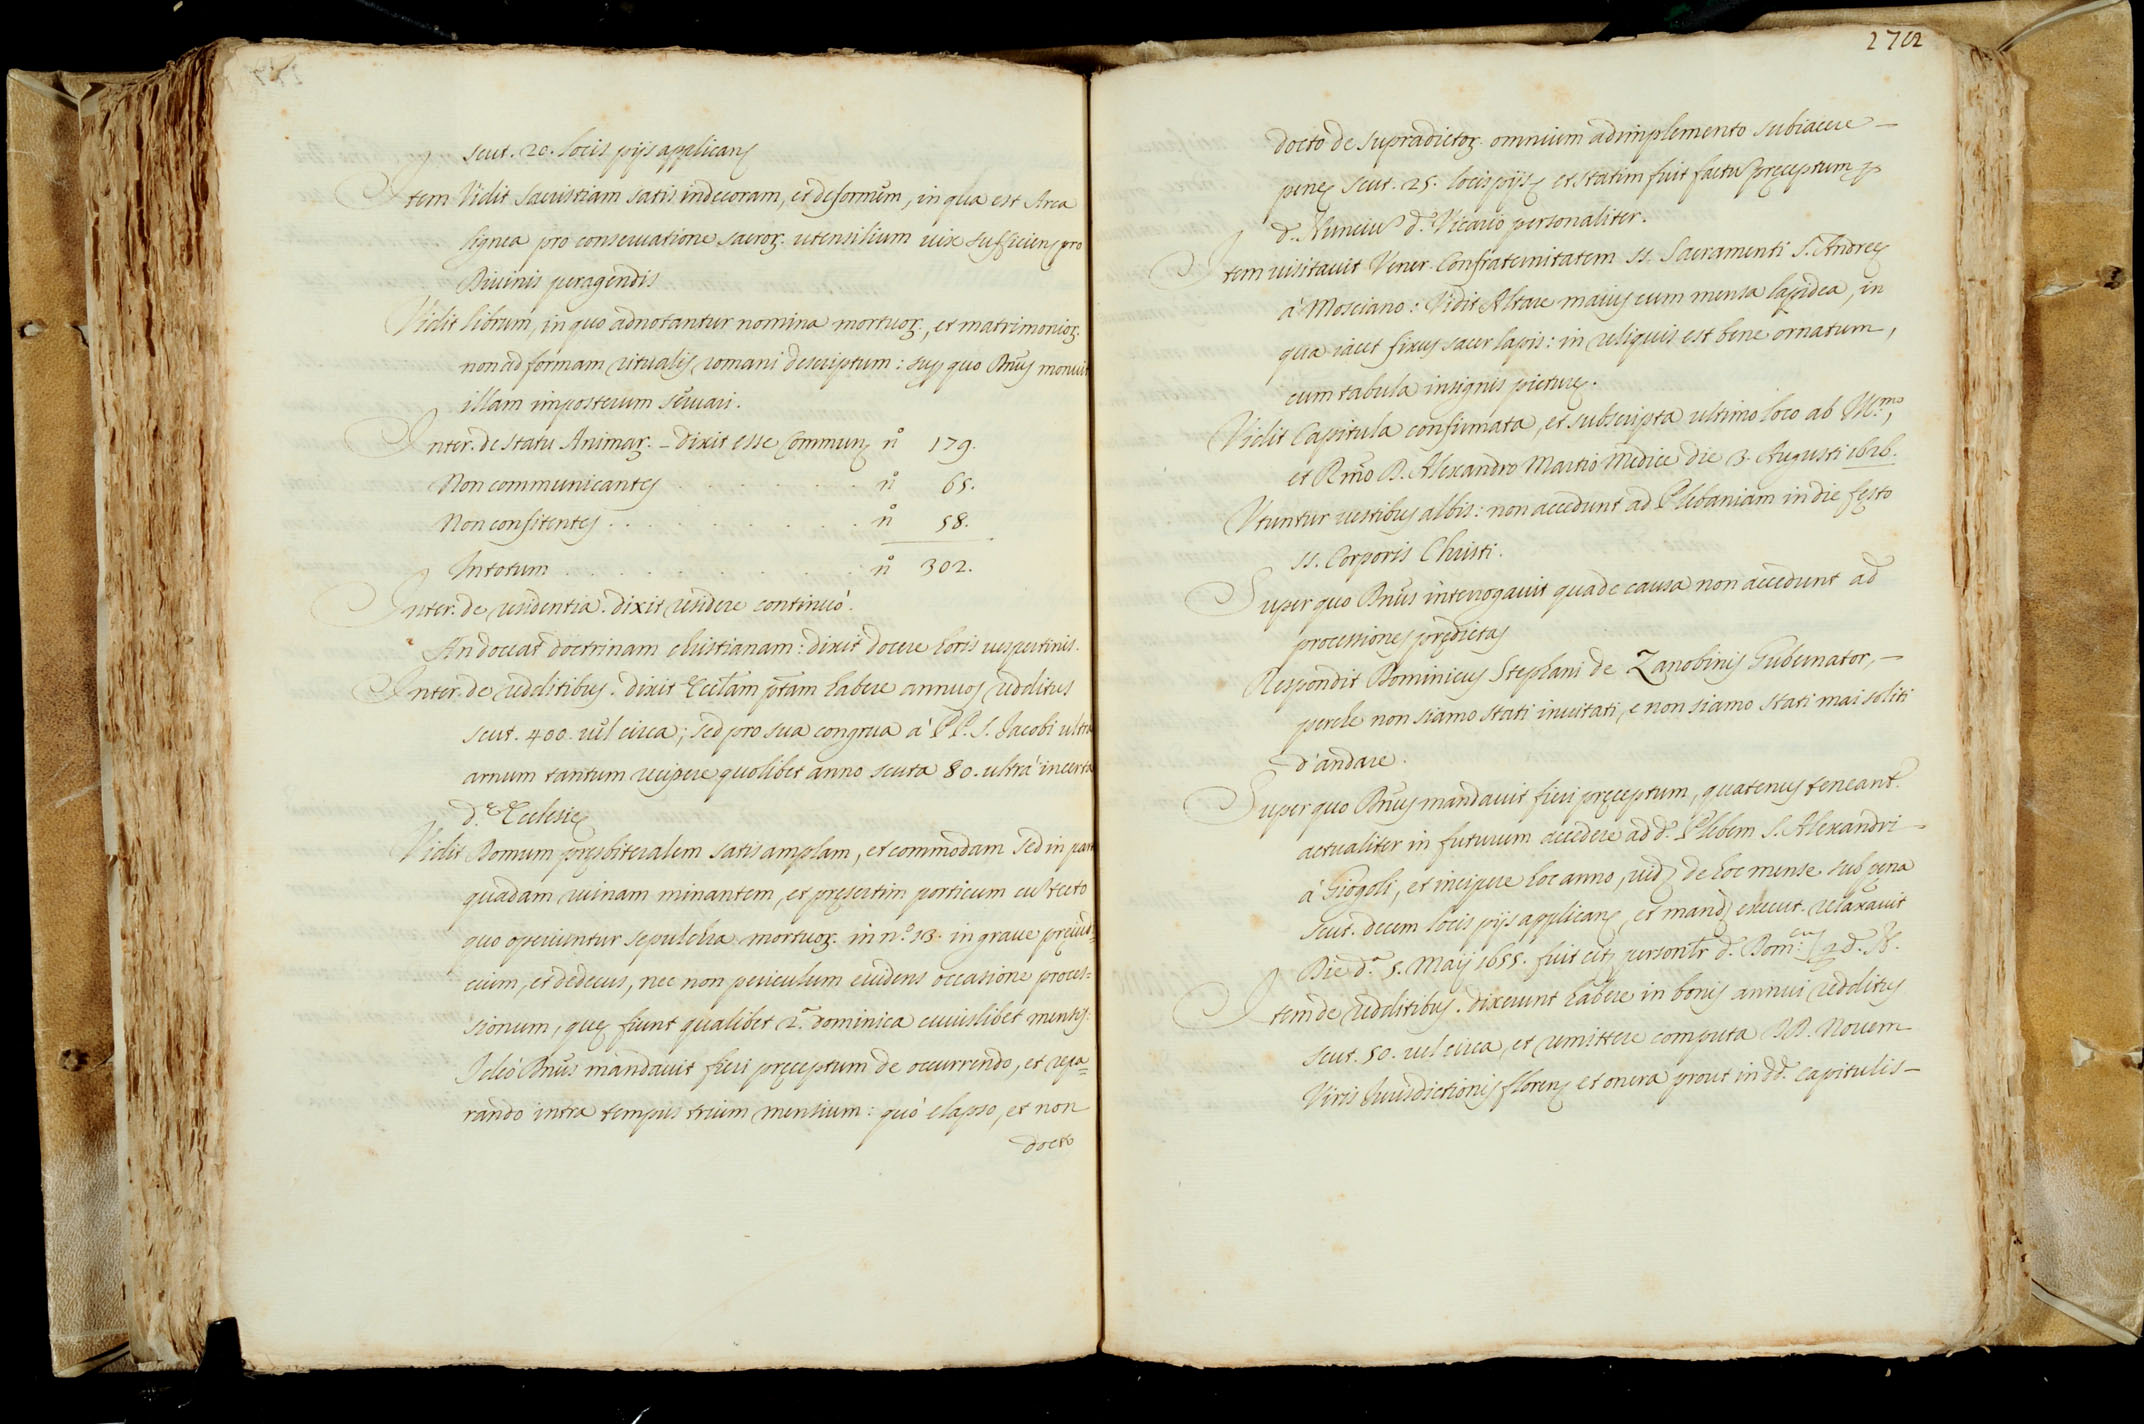 scut. 20. locis pijs applicanȝ
Item Vidit Sacristiam satis indecoram, et deformem, in qua est Arca
lignea pro conseruatione sacroȝ. utensilium uix sufficiens pro
Diuinis peragendis
Vidit librum, in quo adnotantur nomina mortuoȝ., et matrimonioȝ.
non ad formam ritualis romani descriptum: sup. quo Dnūs monuit
illam imposterum seruari.
Inter. de statu Animaȝ. – dixit esse Communȝ n̊ 179.
Non communicantes . . . . . . . n̊ 65.
Non confitentes . . . . . . . . . n̊ 58.
In totum . . . . . . . . . . n̊ 302.
Inter. de residentia. dixit residere continuò.
An doceat doctrinam christianam: dixit docere horis uespertinis.
Inter. de redditibus. dixit Eccl̄am p̄tam habere annuos redditus
scut. 400. uel circa; sed pro sua congrua à PP. S. Jacobi ultra
arnum tantum recipere quolibet anno scuta 80. ultrà incerta
d.ę Ecclesię
Vidit Domum presbiteralem satis amplam, et commodam sed in parte
quadam ruinam minantem, et pręsertim porticum cū tecto
quo operiuntur sepulchra mortuoȝ. in n.° 13. in graue pręiudi=
cium, et dedecus, nec non periculum euidens occasione proces=
sionum, quę fiunt qualibet 2.ª dominica cuiuslibet mensis:
Ideò Dnūs mandauit fieri pręceptum de occurrendo, et repa=
rando intra tempus trium mensium: quò elapso, et non
docto
272
docto de supradictoȝ. omnium adimplemento subiacere –
penę scut. 25. locis pijsȝ et statim fuit factū pręceptum ꝑ
d. Nunciū d.° Vicario personaliter.
Item uisitauit Vener. Confraternitatem SS. Sacramenti S. Andreę
à Mosciano: Vidit Altare maius cum mensa lapidea, in
qua iacet fixus sacer lapis: in reliquis est bene ornatum,
cum tabula insignis picturę.
Vidit Capitula confirmata, et subscripta ultimo loco ab Ill.mo,
et R̄mo D. Alexandro Martio Medice die 3. Augusti 1626.
Vtuntur uestibus albis: non accedunt ad Plebaniam in die festo
SS. Corporis Christi.
Super quo Dnūs interrogauit qua de causa non accedunt ad
processiones prędictas
Respondit Dominicus Stephani de Zanobinis Gubernator, –
perche non siamo stati inuitati, e non siamo stati mai soliti
d'andare.
Super quo Dnūs mandauit fieri pręceptum, quatenus teneant.r
actualiter in futurum accedere ad d. Plebem S. Alexandri –
à Giogoli, et incipere hoc anno, uidȝ de hoc mense sub pena
scut. decem locis pijs applicanȝ, et mandȝ execut. relaxauit
Die d.ª 5. Maij 1655. fuit citȝ personlr̄ d. Dom.cus
Item de redditibus. dixerunt habere in bonis annui redditus
scut. 50. uel circa, et remittere computa DD. Nouem
Viris Jurisdictionis florenȝ et onera prout in dd. capitulis –